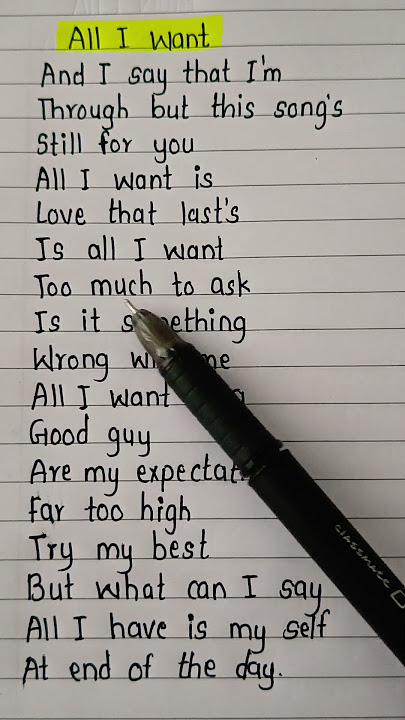 All I want
And I say that I'm
Through but this song's
Still for you
All I want is
Love that last's
Is all I want
Too much to ask
Is it something
Wrong me
All I want
Good guy
Are my
Far too high
Try my best
But what can I say
All I have is my self
At end of the day.
classmate